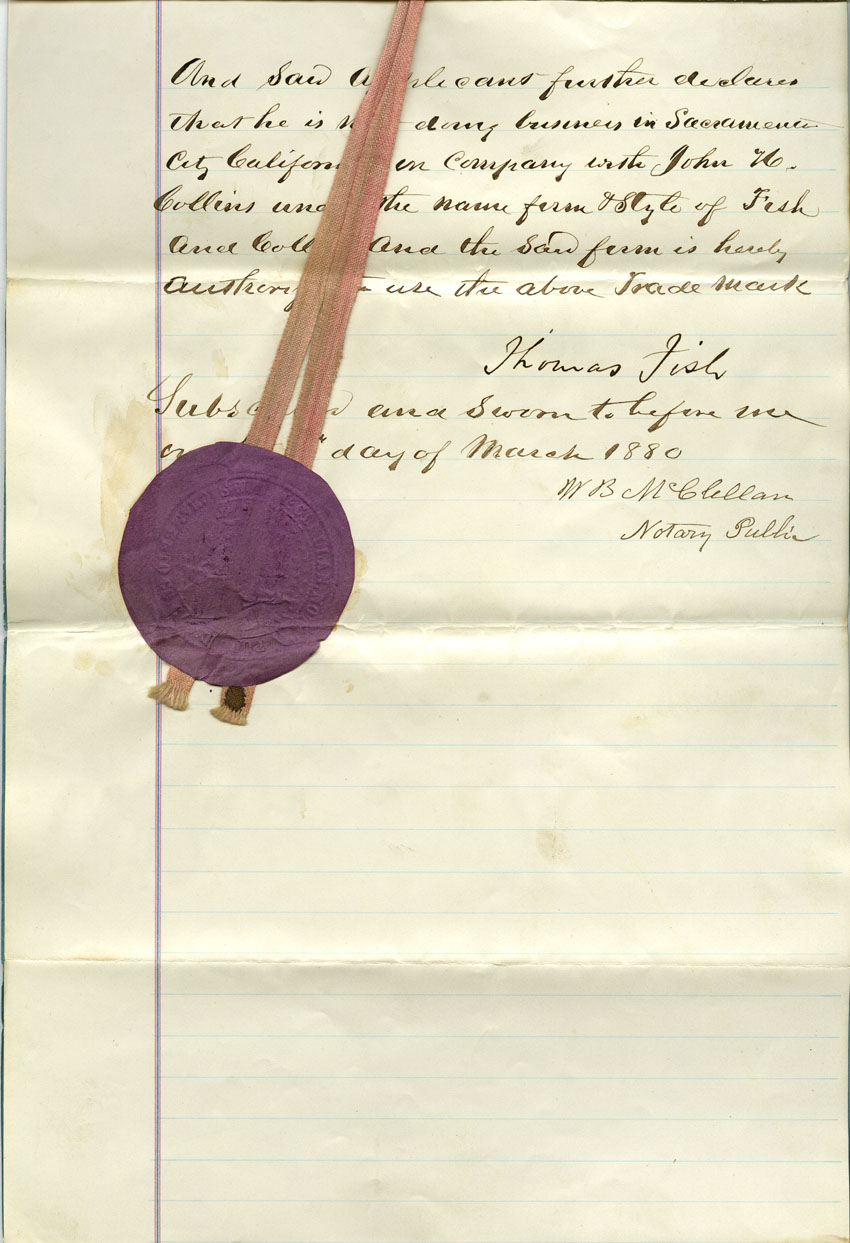 And Said Applicant further declares
that he is now doing business in Sacramento
City California in Company with John H.
Collins under the name firm & Style of Fish
And Coll And the Said firm is hereby
authorized to use the above Trade Mark
Thomas Fish
Subscribed and Sworn to before me
on day of March 1880
W B McClellan
Notary Public